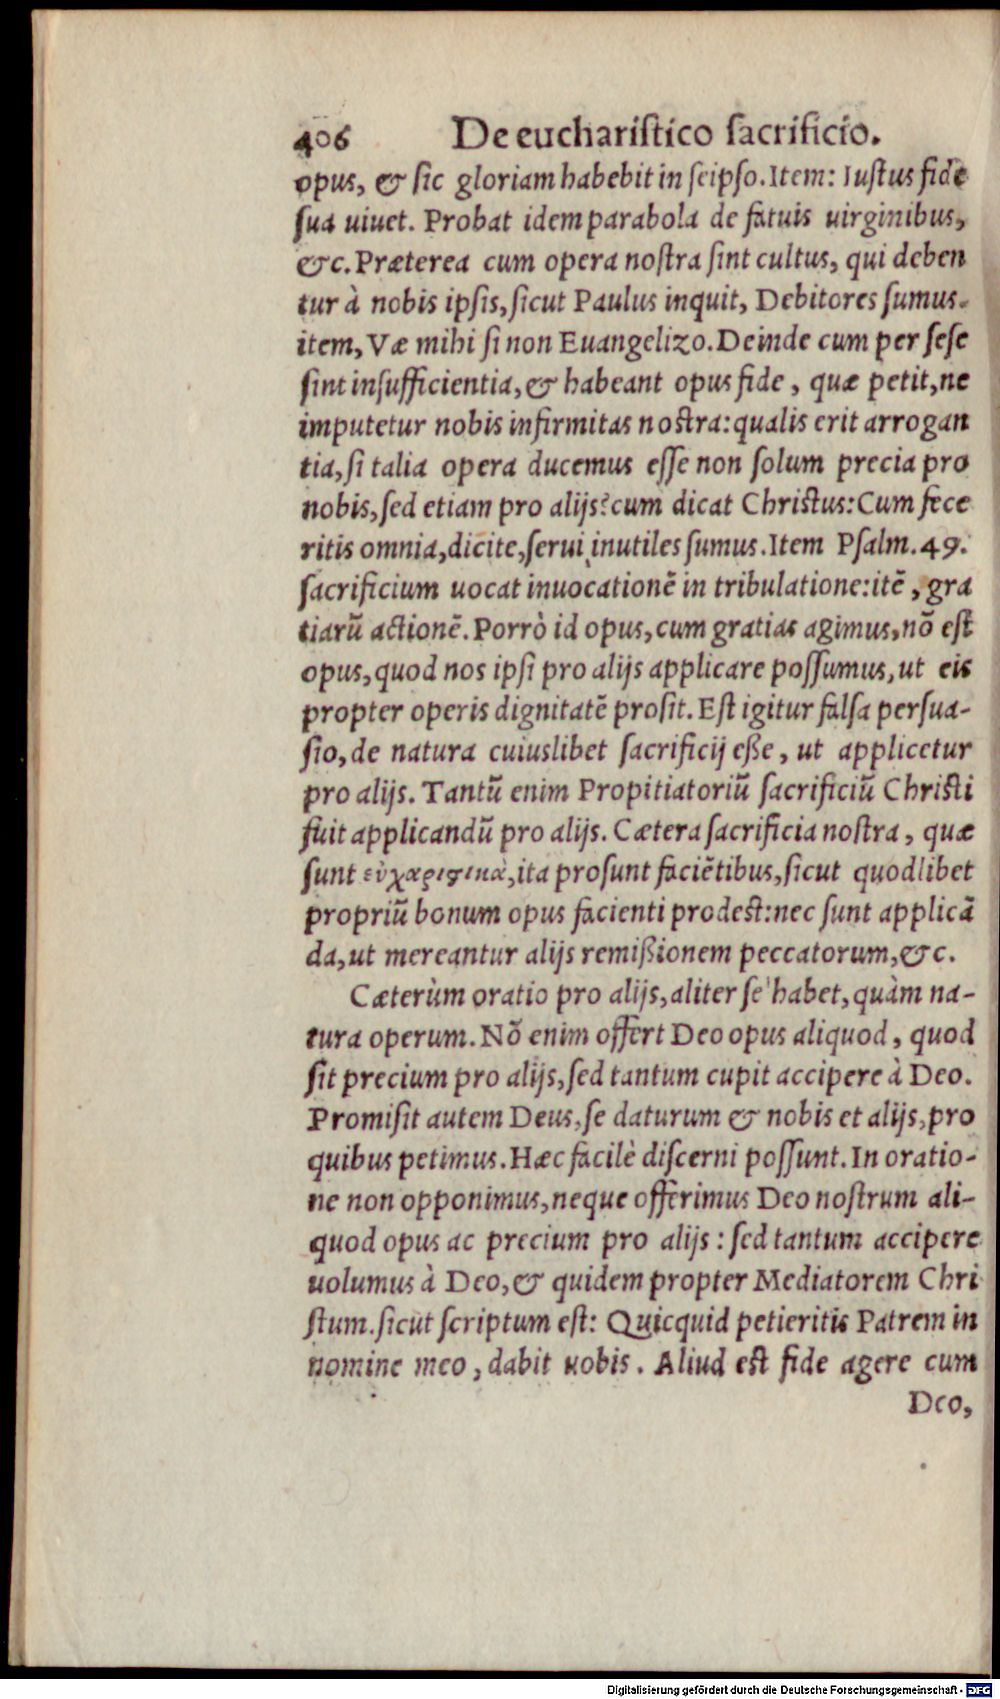 406 De eucharistico sacrificio.
opus, & sic gloriam habebit in seipso. Item: Iustus fide
sua uiuet. Probat idem parabola de fatuis uirginibus,
&c. Præterea cum opera nostra sint cultus, qui deben
tur à nobis ipsis, sicut Paulus inquit, Debitores sumus.
item, Væ mihi si non Euangelizo. Deinde cum per sese
sint insufficientia, & habeant opus fide, quæ petit, ne
imputetur nobis infirmitas nostra: qualis erit arrogan
tia, si talia opera ducemus esse non solum precia pro
nobis, sed etiam pro alijs? cum dicat Christus: Cum fece
ritis omnia, dicite, serui inutiles sumus. Item Psalm. 49.
sacrificium uocat inuocationē in tribulatione: itē, gra
tiarū actionē. Porrò id opus, cum gratias agimus, nō est
opus, quod nos ipsi pro alijs applicare possumus, ut eis
propter operis dignitatē prosit. Est igitur falsa persua-
sio, de natura cuiuslibet sacrificij eße, ut applicetur
pro alijs. Tantū enim Propitiatoriū sacrificiū Christi
fuit applicandū pro alijs. Cætera sacrificia nostra, quæ
sunt εὐχαριστικὰ, ita prosunt faciētibus, sicut quodlibet
propriū bonum opus facienti prodest: nec sunt applicā
da, ut mereantur alijs remißionem peccatorum, &c.
Cæterùm oratio pro alijs, aliter se habet, quàm na-
tura operum. Nō enim offert Deo opus aliquod, quod
sit precium pro alijs, sed tantum cupit accipere à Deo.
Promisit autem Deus, se daturum & nobis et alijs, pro
quibus petimus. Hæc facilè discerni possunt. In oratio-
ne non opponimus, neque offerimus Deo nostrum ali-
quod opus ac precium pro alijs: sed tantum accipere
uolumus à Deo, & quidem propter Mediatorem Chri
stum. sicut scriptum est: Quicquid petieritis Patrem in
nomine meo, dabit uobis. Aliud est fide agere cum
Deo,
Digitalisierung gefördert durch die Deutsche Forschungsgemeinschaft - DFG